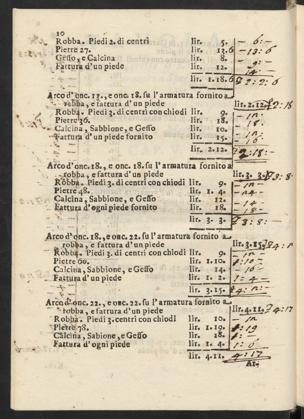 10
Robba. Piedi 2. di centri lir. 5. — 6:—
Pietre 27. lir. 13. 6 — 13: 6
Gesso, e Calcina lir. 8.
Fattura d'un piede lir. 12.
lir. 1. 18. 6
Arco d'onc. 13., e onc. 18. su l'armatura fornito a
robba, e fattura d'un piede lir. 2. 12. 2:18
Robba. Piedi 3. di centri con chiodi lir. 9.
Pietre 36. lir. 18.
Calcina, Sabbione, e Gesso lir. 10.
Fattura d'un piede fornito lir. 15.
lir. 2. 12. 2:18:—
Arco d'onc. 18., e onc. 18. su l'armatura fornito a
robba, e fattura d'un piede lir. 3. 3. 3:8:
Robba. Piedi 3. di centri con chiodi lir. 9.
Pietre 48. lir. 1. 4.
Calcina, Sabbione, e Gesso lir. 12.
Fattura d'ogni piede fornito lir. 18.
lir. 3. 3. 3:8:—
Arco d'onc. 18., e onc. 22. su l'armatura fornito a
robba, e fattura d'un piede lir. 3. 15.
Robba. Piedi 3. di centri con chiodi lir. 9.
Pietre 60. lir. 1. 10.
Calcina, Sabbione, e Gesso lir. 14.
Fattura d'un piede lir. 1. 2.
lir. 3. 15.
Arco d'onc. 22., e onc. 22. su l'armatura fornito a
robba, e fattura d'un piede lir. 4. 11. 4:17
Robba. Piedi 3. di centri con chiodi lir. 10.
Pietre 78. lir. 1. 19. 1:19
Calcina, Sabione, e Gesso lir. 18.
Fattura d'ogni piede lir. 1. 4.
lir. 4. 11. 4:17
Ar.